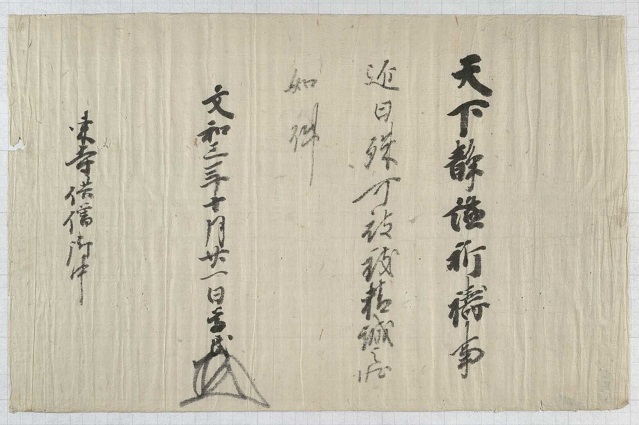 天下静謐祈禱事
近日殊可被致精誠之状
如件
文和三年十月廿一日
東寺供僧御中